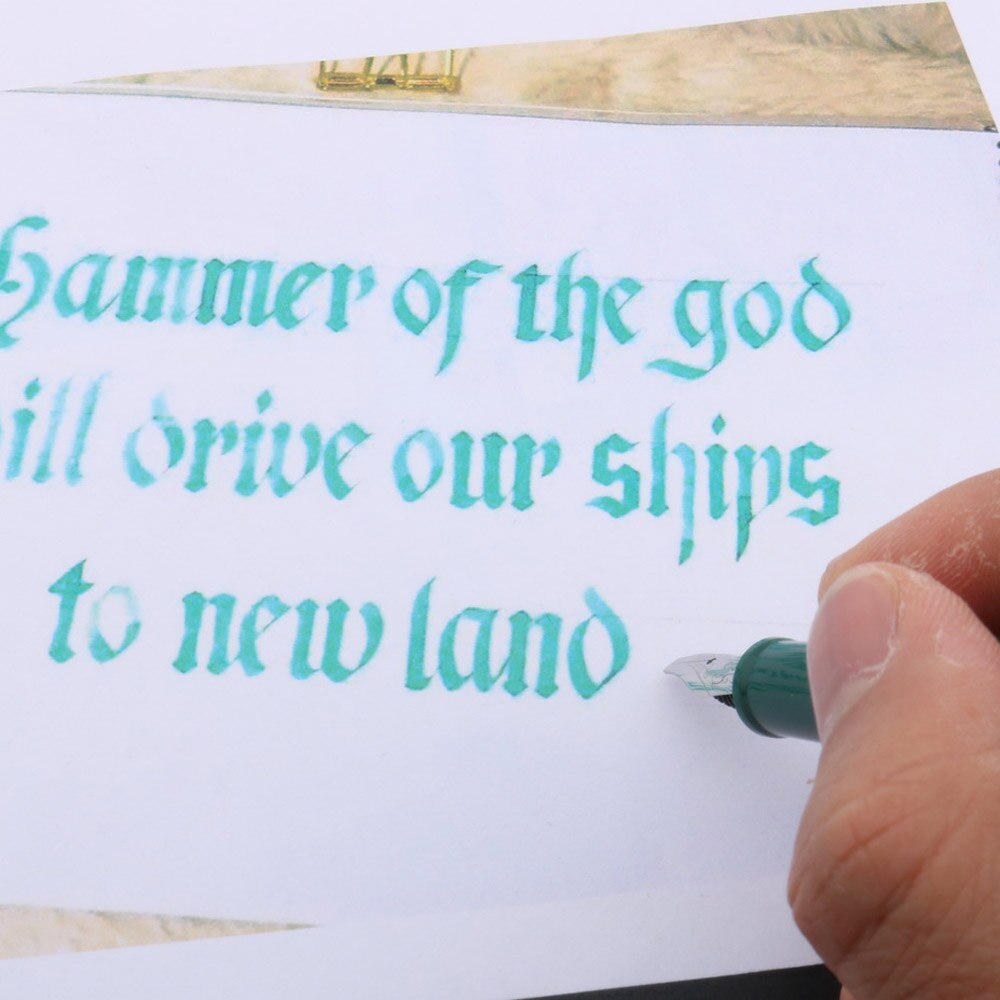 hammer of the god
will drive our ships
to new land